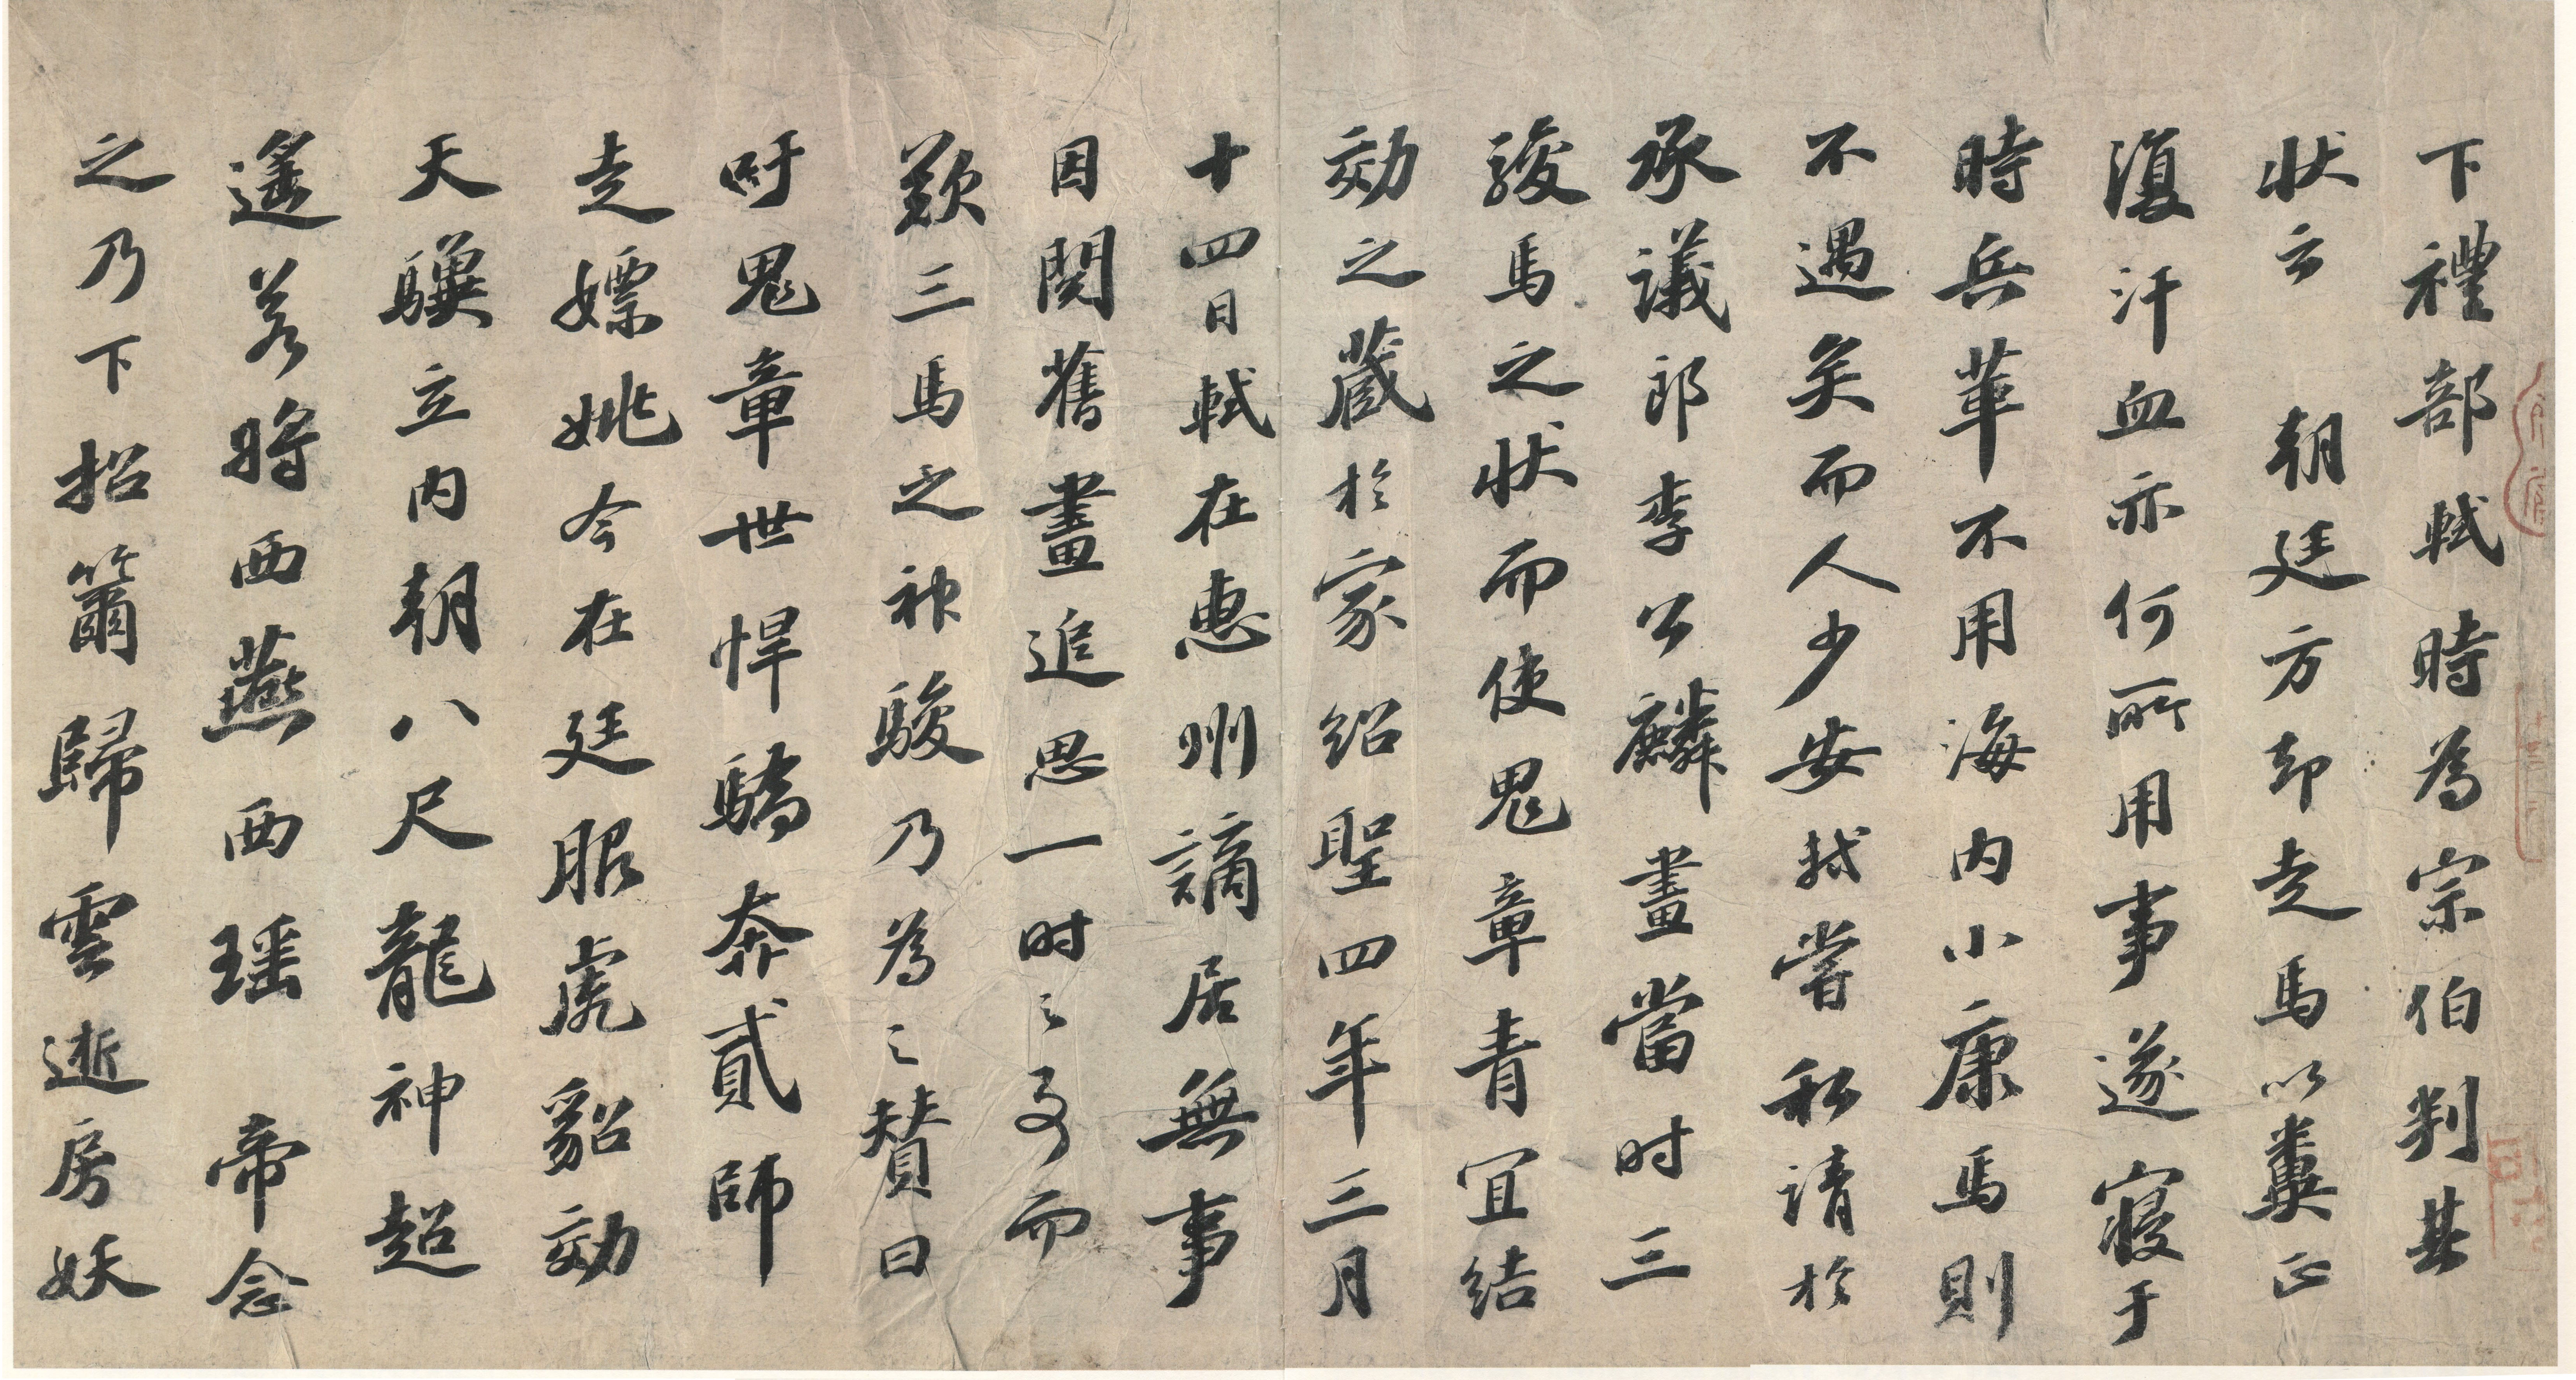 下禮部軾時為宗伯判其
狀云 朝廷方却走馬以糞正
復汗血亦何所用事遂寢于
時兵革不用海内小康馬則
不遇矣而人少安軾嘗私請於
承議郎李公麟畫當时三
駿馬之状而使鬼章青宜結
効之蔵於家紹聖四年三月
十四日軾在惠州謫居無事
因閲舊畫追思一时之事而
歎三馬之神駿乃為之賛曰
吁鬼章世悍驕奔貳師
走嫖姚今在廷服虎貂効
天驥立内朝八尺龍神超
遙若將西燕西瑶 帝念
之乃下招籋歸雲逝房妖